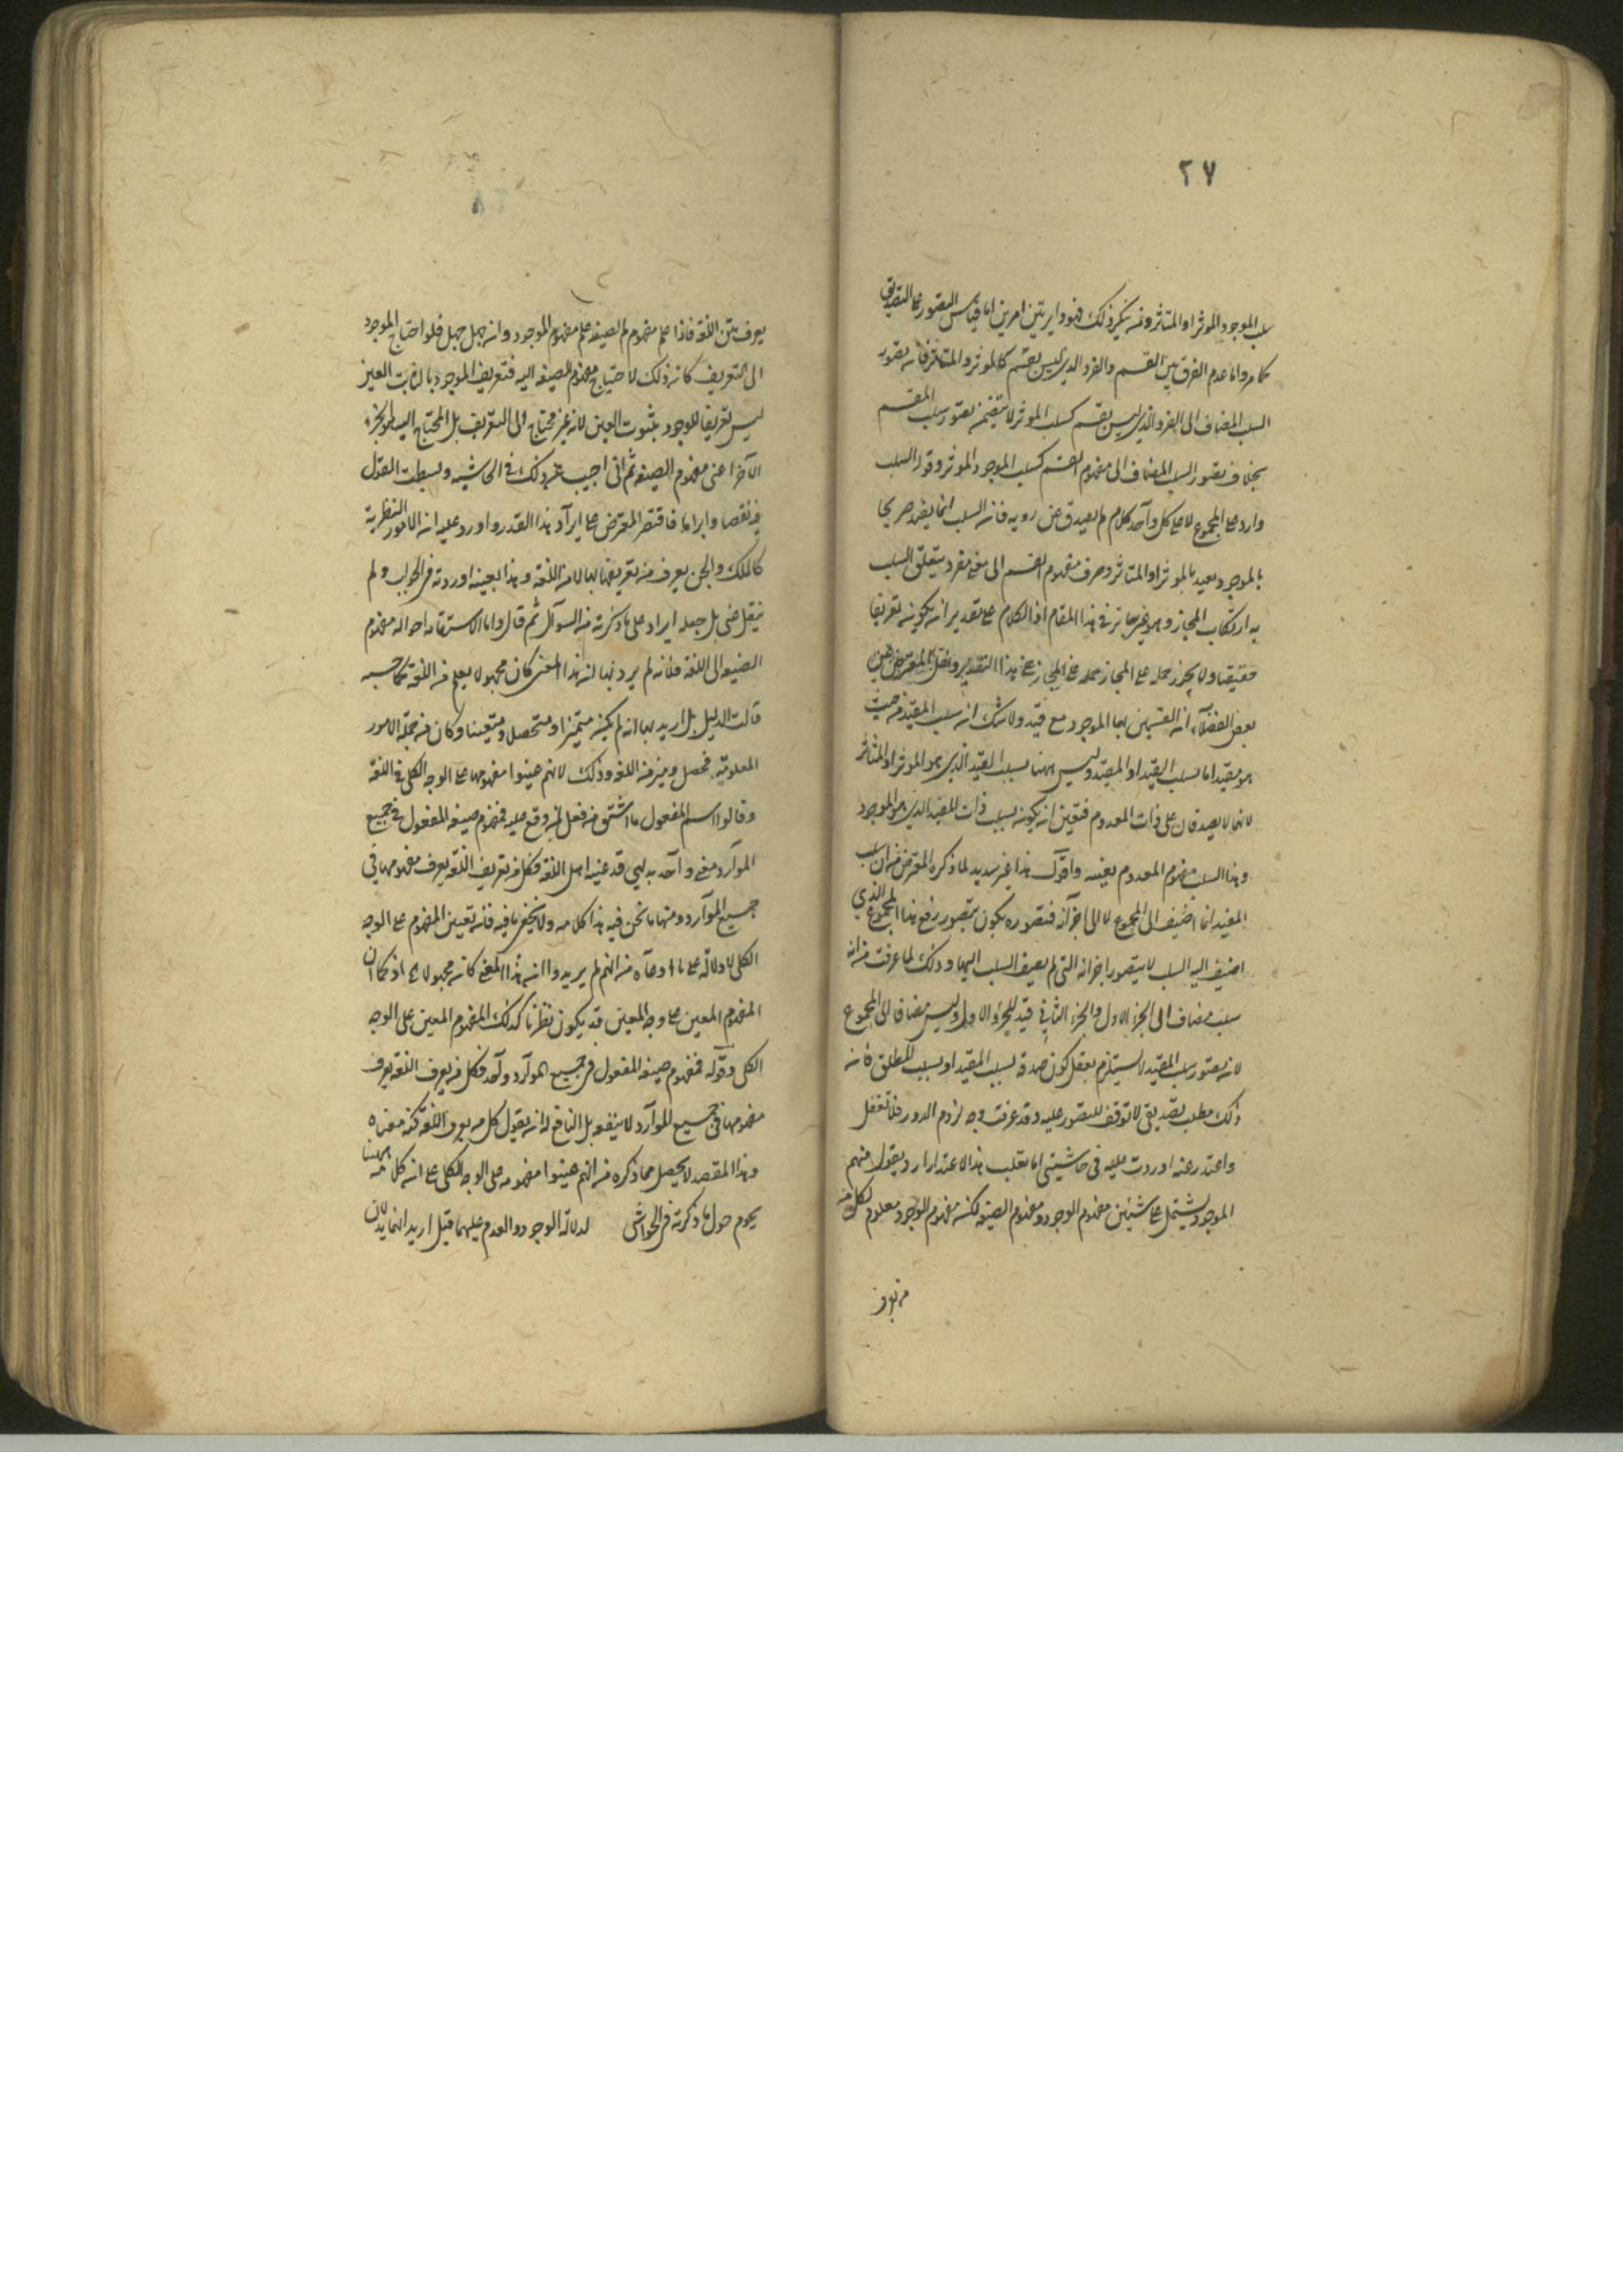 ٢٧
سلب الموجود المؤثر او المتأثر ومن ينكر ذلك فهو داير بين امرين اما قياس التصور على التصديق
كما مر واما عدم الفرق بين القسم والفرد الذي ليس بقسم كالمؤثر والمتأثر فان تصور
السلب المضاف الى الفرد الذي ليس بقسم كسلب المؤثر لا يتضمن تصور سلب المقسم
بخلاف تصور السلب المضاف الى مفهوم القسم كسلب الموجود المؤثر وقوله السلب
وارد على المجموع لا على كل واحد كلام لم يصدق عن روية فان السلب انما يضر صريحا
بالموجود بعيد بالمؤثر او المتاثر وصرف مفهوم القسم الى معنى مفرد يتعلق السلب
به ارتكاب المجاز وهو غير جائز في هذا المقام اذ الكلام على تقدير ان يكون تعريفا
حقيقيا ولا يجوز حمله على المجاز على هذا التقدير ونقل المعترض عن
بعض الفضلاء ان القسمين هما الموجود مع قيد ولا شك ان سلب المقيد من حيث
هو مقيد اما بسلب القيد او المقيد وليس ههنا بسلب القيد الذي هو المؤثر او المتأثر
لانهما لا يصدقان على ذات المعدوم فتعين ان يكون بسلب ذات المقيد الذي هو الموجود
وهذا السلب مفهوم المعدوم بعينه واقول هذا غير سديد لما ذكره المعترض من ان سلب
المقيد انما اضيف الى المجموع لا الى اجزائه فتصوره يكون بتصور رفع هذا المجموع الذي
اضيف اليه السلب لا بتصور اجزائه التي لم يضف السلب اليها وذلك لما عرفت من انه
سلب مضاف الى الجزء الاول والجزء الثاني قيد للجزء الاول وليس مضافا الى المجموع
لان تصور سلب المقيد لا يستلزم تعقل كون صدقه بسلب المقيد او بسلب المطلق فانه
ذلك مطلب تصديقي لا توقف للتصور عليه وقد عرفت وجه لزوم الدور فلا تغفل
واعتذر عنه اوردت عليه في حاشيتي اما بقلب هذا الاعتذار ار ويقول منهم
الموجود يشتمل على شيئين مفهوم الوجود ومفهوم الصيغة لكن مفهوم الوجود معلوم لكل من
من يعرف
يعرف متن اللغة فاذا علم مفهوم الصيغة علم مفهوم الموجود وان جهل جهل فلو احتاج الموجود
الى التعريف كان ذلك لاحتياج مفهوم الصيغة اليه فتعريف الموجود بالثابت العين
ليس تعريفا للوجود بثبوت العين لانه غير محتاج الى التعريف بل المحتاج اليه هو الجزء
الآخر اعني مفهوم الصيغة ثم اني اجيب عن ذلك في الحاشية وبسطت القول
فيه نقضا وابراما فاقتصر المعترض على ايراد هذا القدر واورد عليه ان الامور النظرية
كالملك والجن يعرف من تعريفهما لها لا من اللغة وهذا بعينه اوردته في الجواب ولم
ينقل عني بل جعله ايرادا على ما ذكرته من السوآل ثم قال واما الاستشهاد احواله مفهوم
الصيغة الى اللغة فانه لم يرد بها ان هذا المعنى كان مجهولا يعلم من اللغة كما حسبه
قالت الدليل بل اريد بها انه لم يكن متميزا ومتحصلا ومتعينا وكان من جملة الامور
المعلومة فحصل وميز من اللغة وذلك لانهم عينوا مفهومها على الوجه الكلي في اللغة
وقالوا اسم المفعول ما اشتق من فعل لمن وقع عليه فمفهوم صيغة المفعول في جميع
الموارد معنى واحد بديهي قد عينه اهل اللغة فكل من يعرف اللغة يعرف مفهومها في
جميع الموارد ومنها ما نحن فيه هذا كلامه ولا يخفى ما فيه فان تعيين المفهوم على الوجه
الكلي لا دلالة على ما ادعاه من انهم لم يريدوا ان هذا المعنى كان مجهولا اذ كما ان
المفهوم المعين على وجه المعين قد يكون نظريا كذلك المفهوم المعين على الوجه
الكلي وقوله فمفهوم صيغة المفعول في جميع الموارد واحد فكل من يعرف اللغة يعرف
مفهومها في جميع الموارد لا ينفعه بل النافع له ان يقول كل من يعرف اللغة كنه معناه
وهذا المقصد لا يحصل مما ذكره من انهم عينوا مفهومه على الوجه الكلي على انه كل من ههنا
يحوم حول ما ذكرته في الحواشي لدلالة الوجود والعدم عليهما قيل اريد انهما يدلان